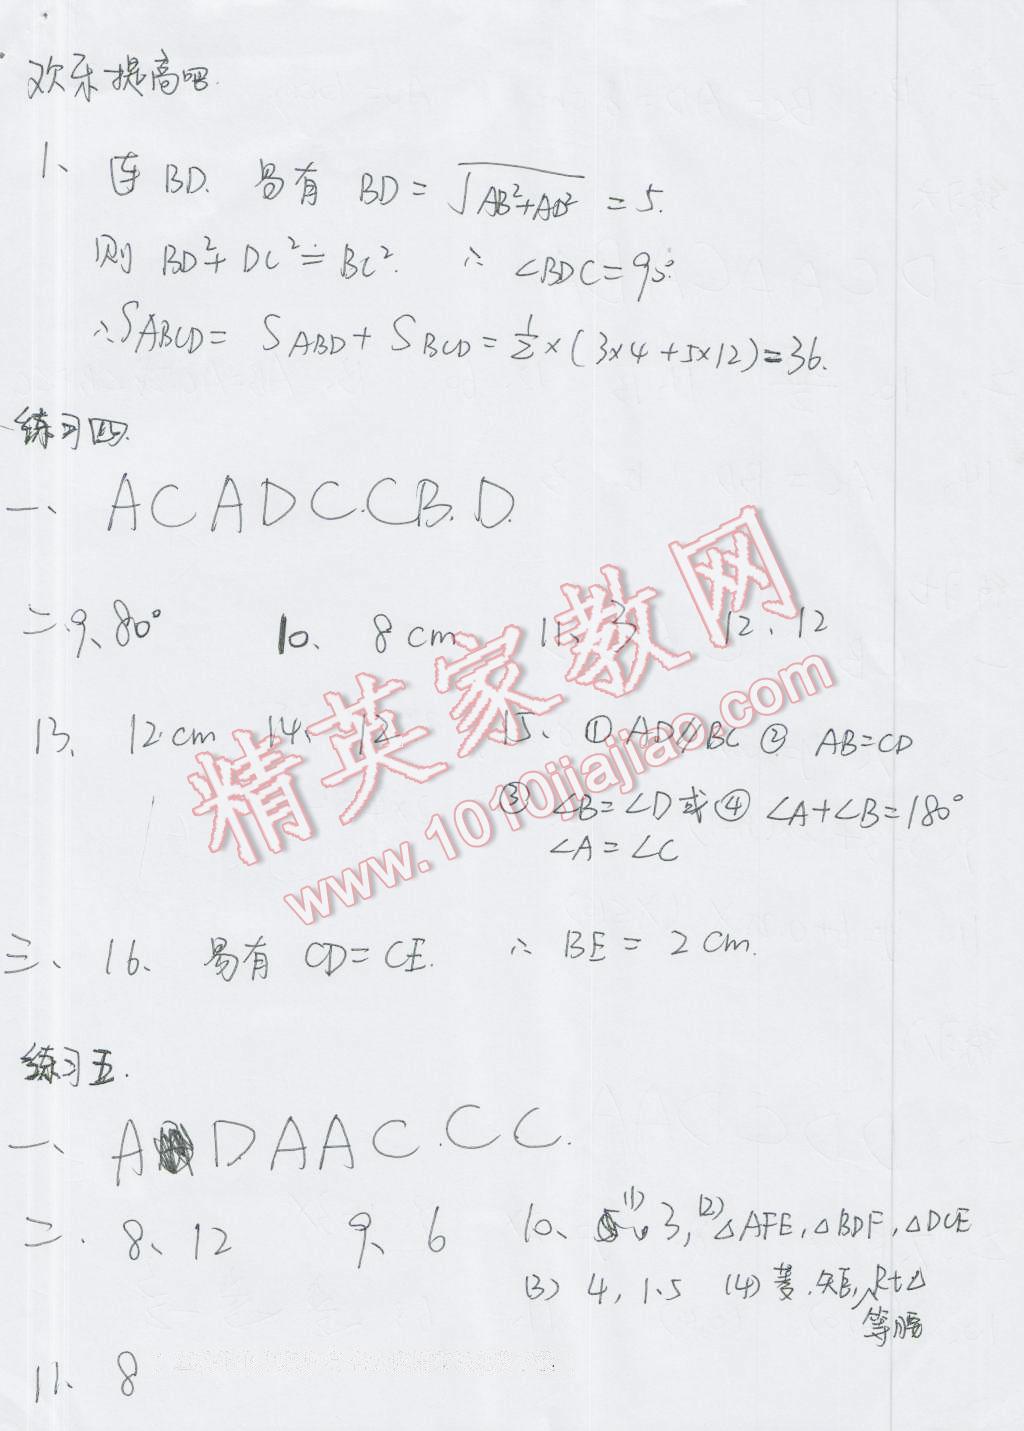 欢乐提高吧.
1、 连BD. 易有 BD = √AB²+AD² = 5.
则 BD²+DC²=BC². ∴ ∠BDC=90°.
∴S_ABCD = S_ABD + S_BCD = 1/2 × (3×4+5×12)=36.
练习四.
一、 A C A D C. C B. D.
二.9、80° 10、 8cm 11、3 12、12
13、 12cm 14、 12 15、 ① AD∥BC ② AB=CD
③ ∠B=∠D 或 ④ ∠A+∠B=180°
∠A=∠C
三、 16、 易有 CD=CE. ∴ BE = 2cm.
练习五.
一、 A D A A C. C C.
二. 8、12 9、6 10、 (1) 3, (2) △AFE, △BDF, △DCE
(3) 4, 1.5 (4) 菱. 矩, 等腰Rt△
11、 8
精英家教网
www.1010jiajiao.com